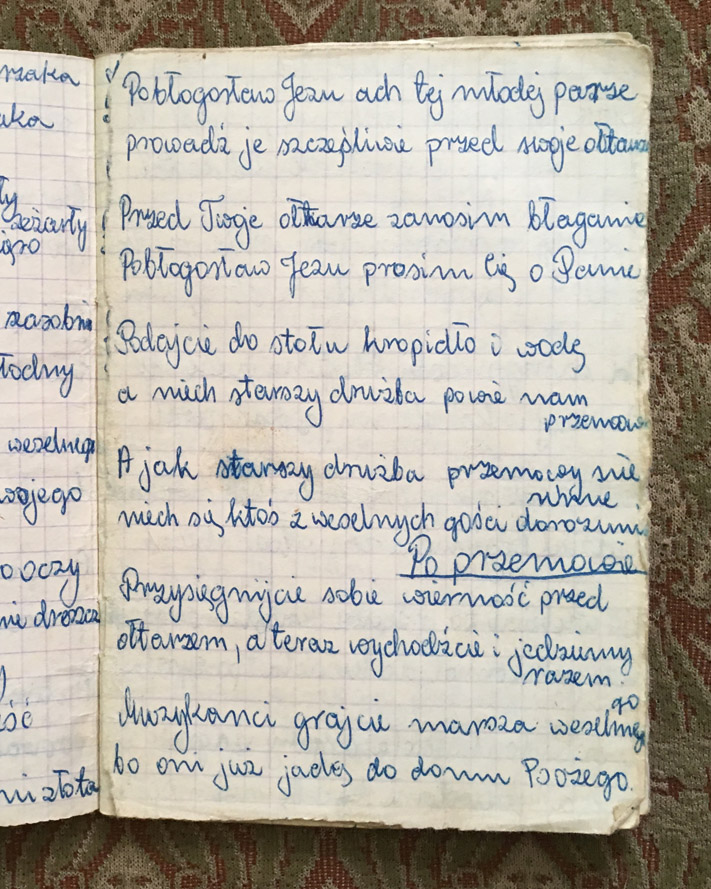 rzaka
aka
ły
zeżarły
zasobni
łodny
weselnego
wojego
o oczy
nie droszcz
ość
ni złota
Pobłogosław Jezu ach tej młodej parze
prowadź je szczęśliwie przed swoje ołtarze
Przed Twoje ołtarze zanosim błaganie
Pobłogosław Jezu prosim Cię o Panie
Podejcie do stołu kropidło i wodę
a niech starszy drużba powie nam
przemow
A jak starszy drużba przemowy nie
umie
niech się ktoś z weselnych gości dorozumi
Po przemowie
Przysięgnijcie sobie wierność przed
ołtarzem, a teraz wychodźcie i jedziemy
razem.
Muzykanci grajcie marsza weselnego
bo oni już jadą do domu Bożego.